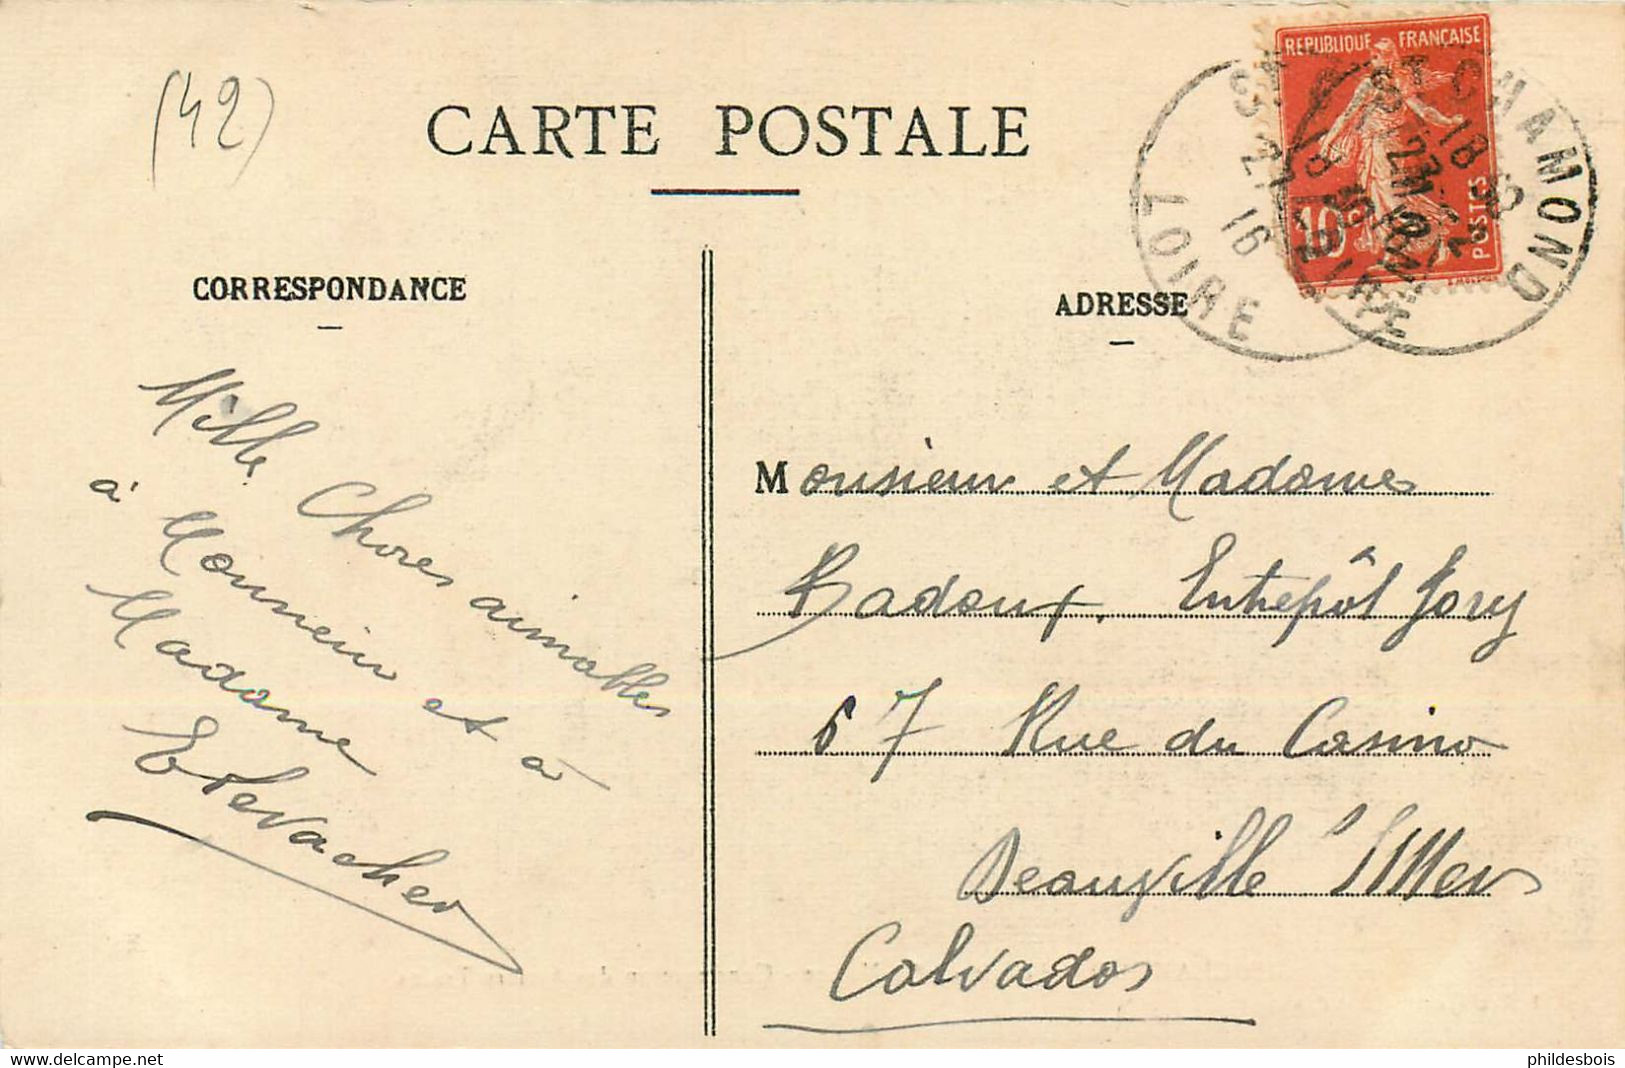 (42)
CARTE POSTALE
REPUBLIQUE FRANÇAISE
10c
POSTES
ST CHAMOND
LOIRE
16
CORRESPONDANCE
ADRESSE
Mille Choses aimables
à Monsieur et à
Madame
Monsieur et Madame
Badoux, Entrepôt Jory
67 Rue du Casino
Deauville S/Mer
Calvados
phildesbois